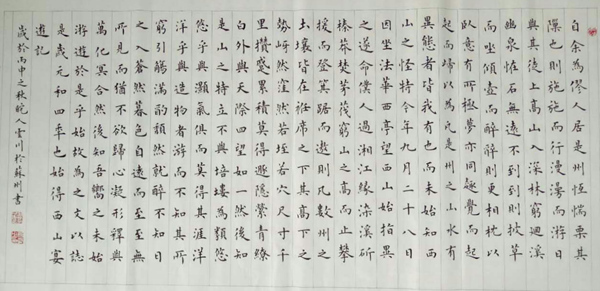 自余為僇人居是州恒惴栗其
隟也則施施而行漫漫而游日
與其徒上高山入深林窮迴溪
幽泉怪石無遠不到到則披草
而坐傾壺而醉醉則更相枕以
臥意有所極夢亦同趣覺而起
起而歸以為凡是州之山水有
異態者皆我有也而未始知西
山之怪特今年九月二十八日
因坐法華西亭望西山始指異
之遂命僕人過湘江緣染溪斫
榛莽焚茅茷窮山之高而止攀
援而登箕踞而遨則凡數州之
土壤皆在衽席之下其高下之
勢岈然窪然若垤若穴尺寸千
里攢蹙累積莫得遯隱縈青繚
白外與天際四望如一然後知
是山之特立不與培塿為類悠
悠乎與灝氣俱而莫得其涯洋
洋乎與造物者游而不知其所
窮引觴滿酌頹然就醉不知日
之入蒼然暮色自遠而至至無
所見而猶不欲歸心凝形釋與
萬化冥合然後知吾嚮之未始
游游於是乎始故為之文以誌
是歲元和四年也始得西山宴
遊記
歲於丙申之秋皖人雲川於蘇州書